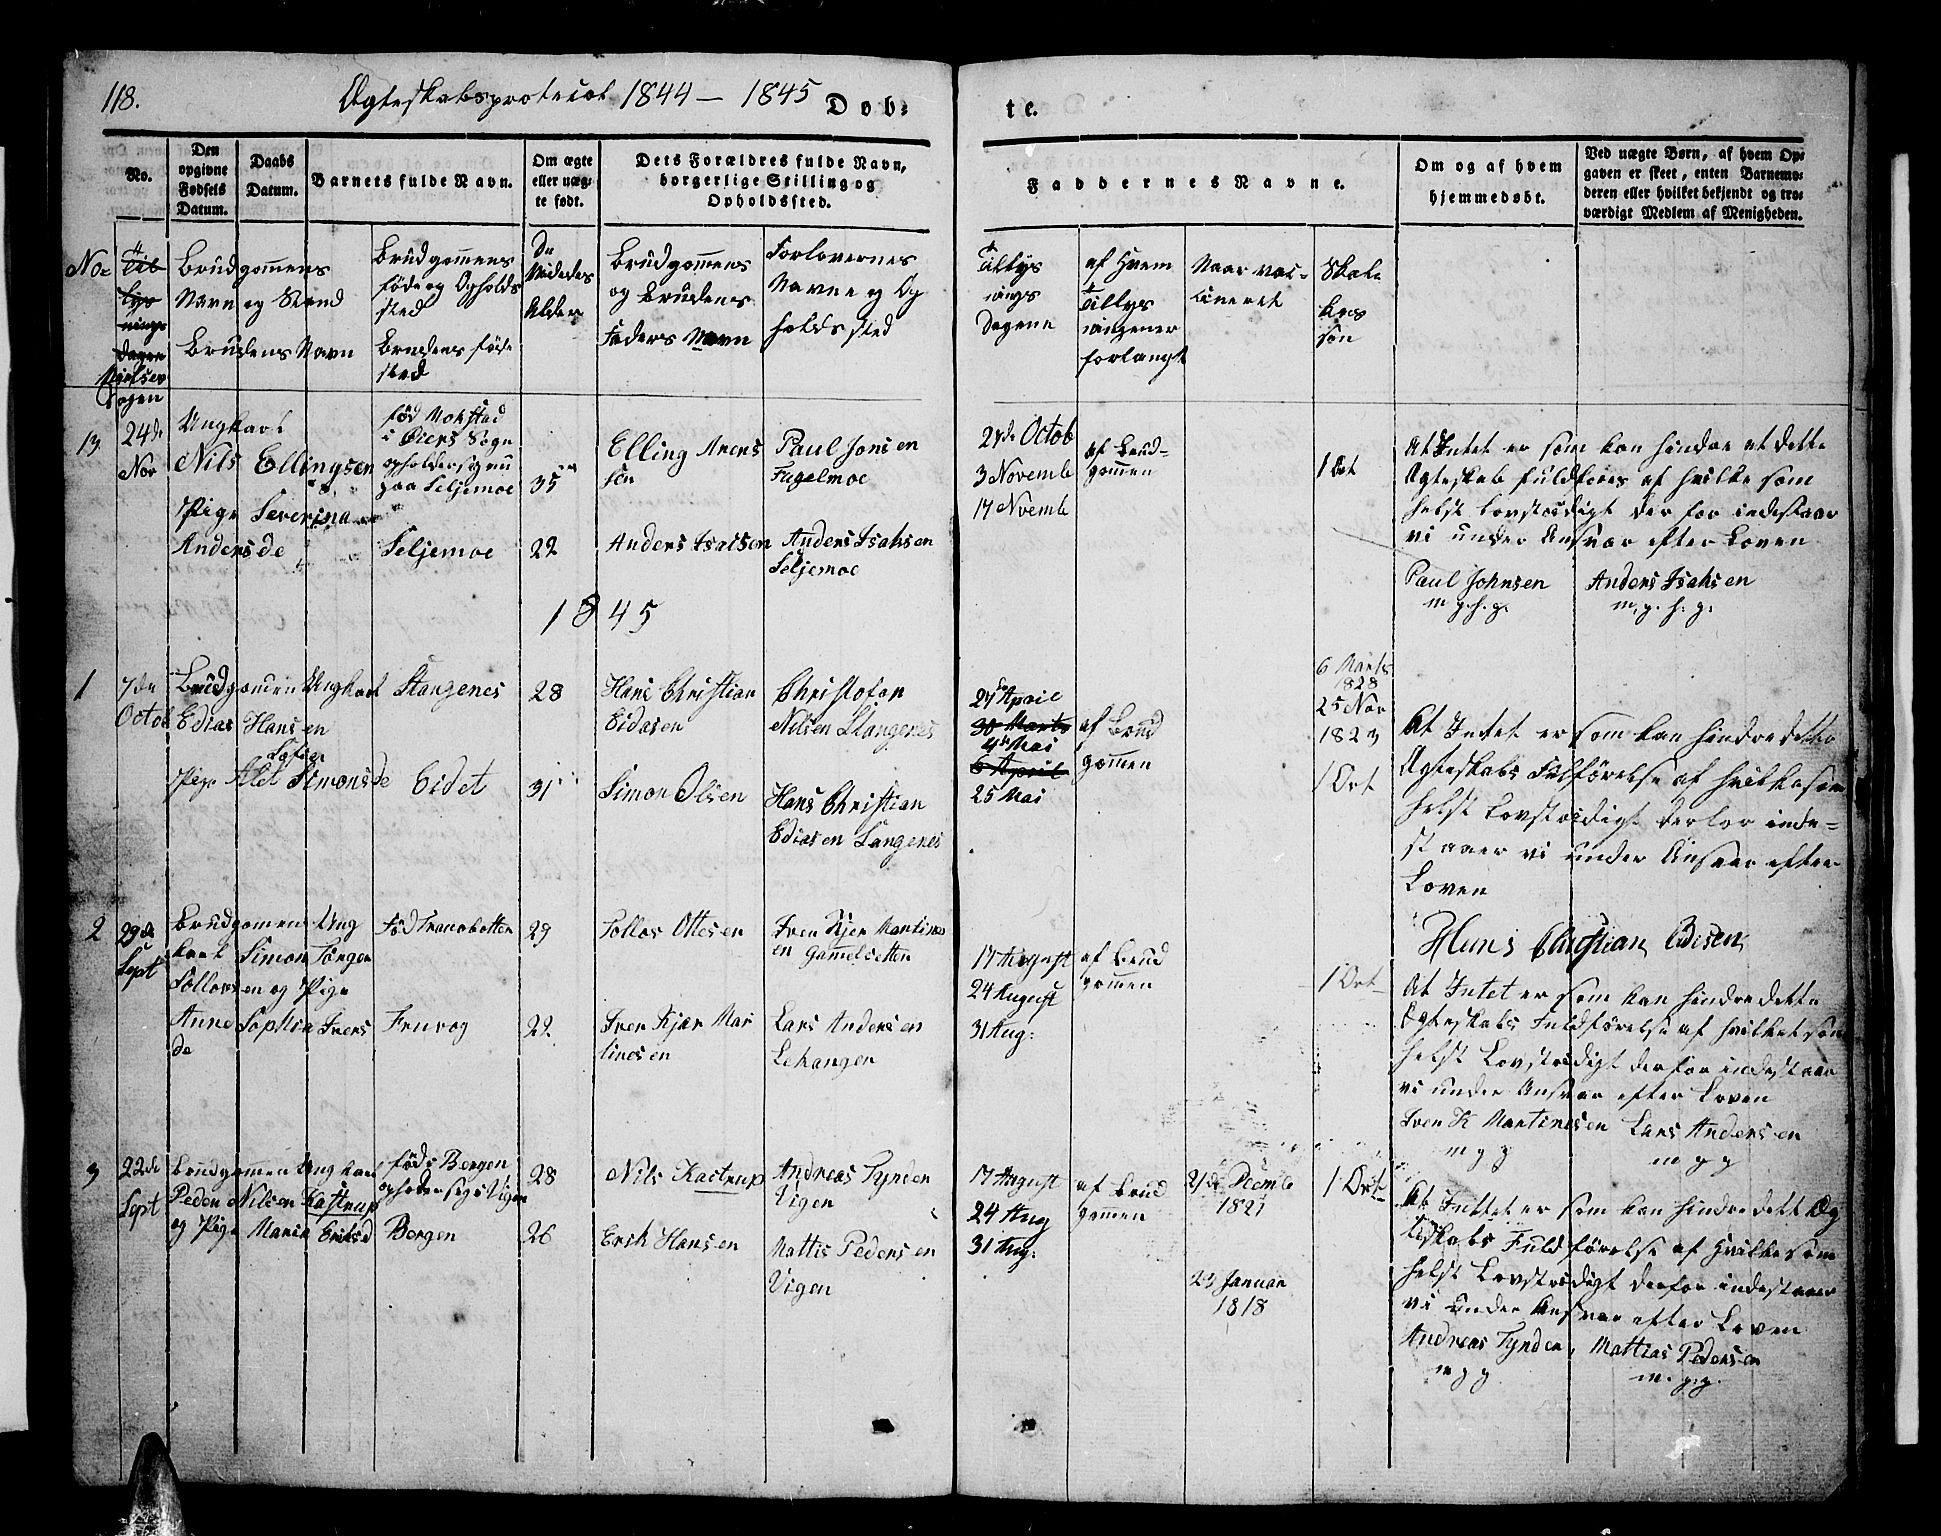 118.
Ægteskabsprotocol 1844 — 1845
Døb=
te.
No.
Den opgivne Fødsels Datum.
Daabs Datum.
Barnets fulde Navn.
Om ægte eller uægte født.
Dets Forældres fulde Navn, borgerlige Stilling og Opholdssted.
Faddernes Navne.
Om og af hvem hjemmedøbt.
Ved uægte Børn, af hvem Opgaven er skeet, enten Barnemoderen eller hvilket bekjendt og troværdigt Medlem af Menigheden.
No
Brudgommens
Navn og Stand
Brudens Navn
Brudgommens
føde og Opholds
sted
Brudens føde
sted
De
Viedes
Alder
Brudgommens
og Brudens
Faders Navn
Forlovernes
Navne og Op
holdssted
Tillys
nings
Dagene
af Hvem
Tillys
ningener
forlangt
Naar vac-
cineret
13.
24de
Nov
Ungkarl
Nils Ellingsen
Pige Severina
Andersde
fød Mokstad
i Øiens Sogn
opholder sig nu
paa Seljemoe
Seljemoe
35
22
Elling Arens
sen
Anders Isaksen
Paul Jonsen
Fugelmoe
Anders Isaksen
Seljemoe
3 Novemb
17 Novemb
af Brud-
gommen
1 Ort
At Intet er som kan hindre at dette
Ægteskab fuldføres af hvilke som
helst Lovstridigt der for indestaar
vi under Ansvar efter Loven
Paul Johnsen
m. p. h. g.
Anders Isaksen
m. p. h. g.
1845
1
7de
Octob
Brudgomen Ungkarl
Edias Hansen
Pige Alet Simonsde
Stangenes
Eidet
28
31
Hans Christian
Eidasen
Simon Olsen
Christofer
Nilsen Stangenes
Hans Christian
Ediasen Langenes
April
30 Marts
4de Mai
6 April
25 Mai
af Brud
gommen
6 Marts
1828
25 Nov
1823
1 Ort
At Intet er som kan hindre dette
Ægteskabs Fulførelse af hvilke som
helst Lovstridigt derfor inde=
staaer vi under Ansvar efter
Loven
Hans Christian Edisen
2
29de
Sept
Brudgomen Ung
karl Simon Jørgen
Tolløvsen og Pige
Anne Sophia Ivers
de
Fød Tranebotten
29
22
Tolløv Ottesen
Iver Kjær Mar
tinesen
Iver Kjær Martines
en Gammelsetten
Lars Andersen
Lekangen
17 August
24 August
31 Aug:
af Brud
gomen
1 Ort
At Intet er som kan hindre dette
Ægteskabs Fuldførelse af hvilket som
helst Lovstridigt derfor indestaar
vi under Ansvar efter Loven
Iver K Martinesen
m g g
Lars Andersen
m g g
3
22de
Sept
Brudgomen Ungkarl
Peder Nilsen Kastrup
og Pige Maria Eriksd
føds Bergen
opholder sig i Vigen
Bergen
28
26
Nils Kastrup
Erik Hansen
Andreas Tynden
Vigen
Mattis Pedersen
Vigen
17 August
24 Aug
31 Aug:
af Brud
gommen
21de Decmb
1821
23 Januar
1818
1 Ort
At Inttet er som kan hindre dett Æg
teskabs Fuldførelse af hvilke som
helst Lovstridigt derfor indestaaer
vi under Ansvar efter Loven
Andreas Tynden,
m g g
Mattias Pedersen
m. g. g.